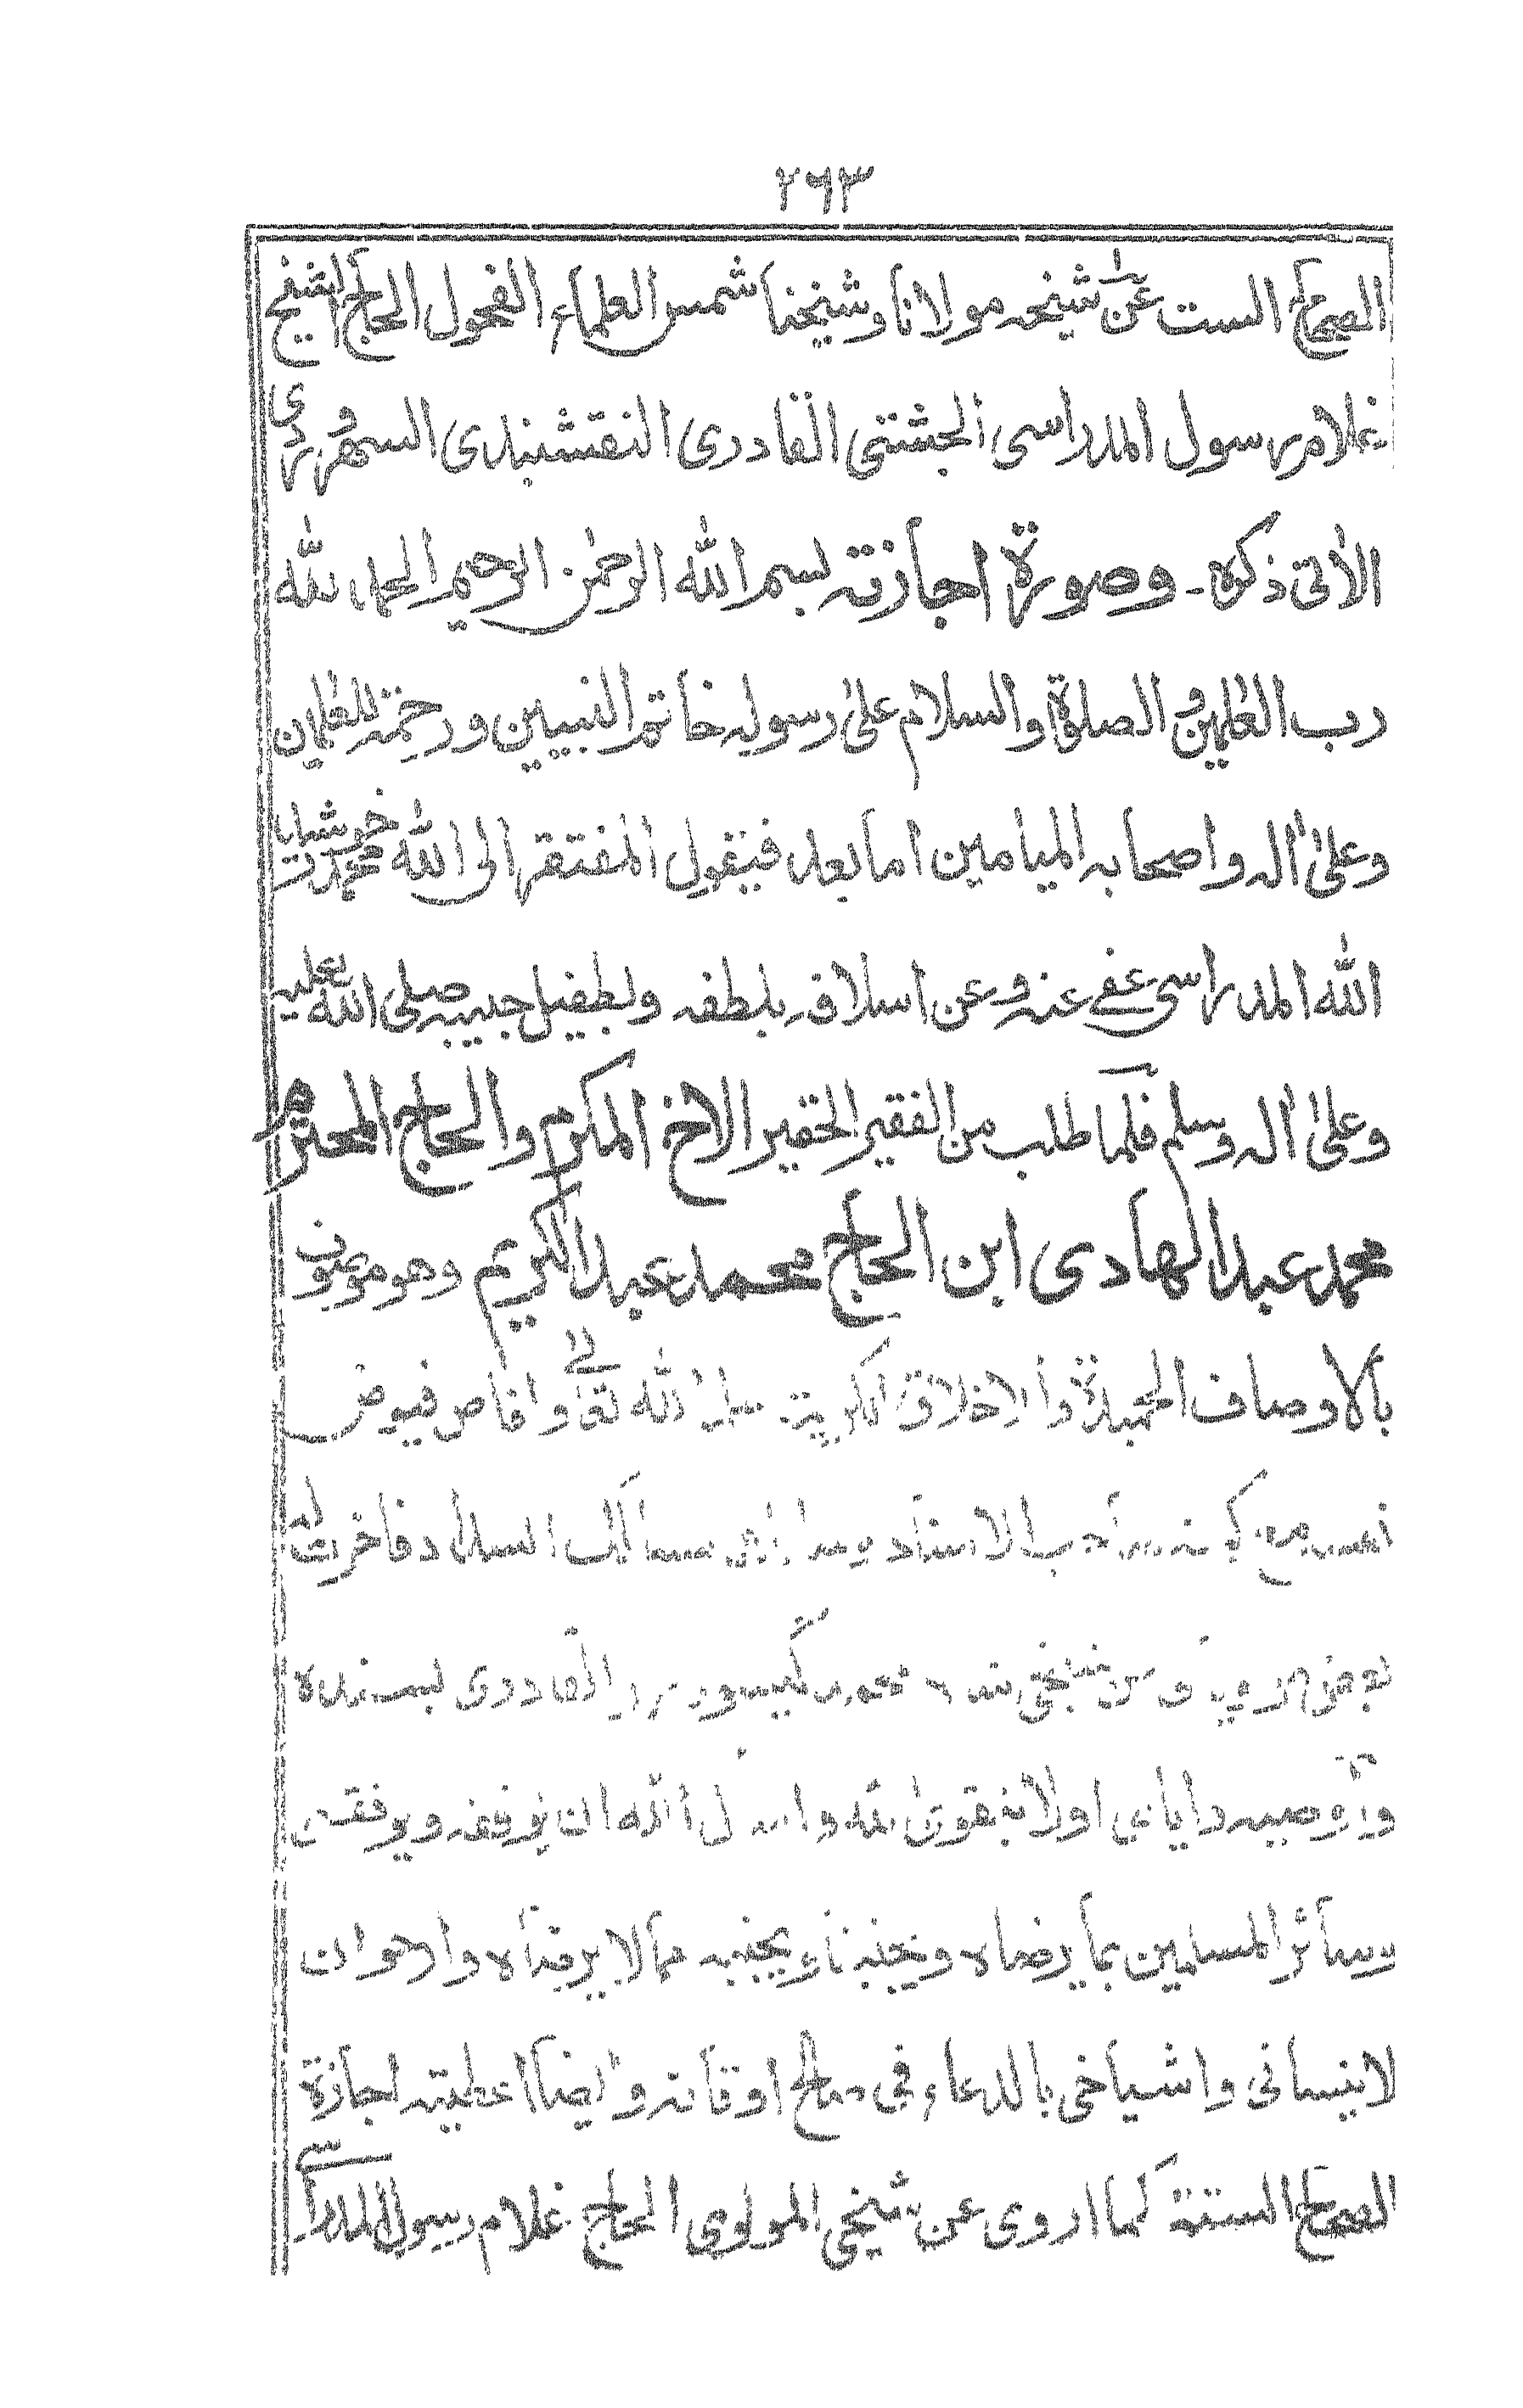 ٢٦٣
الصحاح الست عن شيخه مولانا وشيخنا شمس العلماء الفحول الحاج الشيخ
غلام رسول المدراسى الجشتى القادرى النقشبندى السهروردى
الاٰتى ذكره ۔ وصورة اجازته بسم الله الرحمٰن الرحيم الحمد لله
رب العٰلمين و الصلوة والسلام علىٰ رسوله خاتم النبيين ورحمته للعٰلمين
وعلىٰ اٰله واصحابه الميامين اما بعد فيقول المفتقر الى الله محمد قدرت
الله المدراسى عفى عنه وعن اسلافه بلطفه وبطفيل حبيبه صلى الله عليه
وعلىٰ اٰله وسلم فلما طلب من الفقير الحقير الاخ المكرم والحاج المحترم
محمد عبد الهادى ابن الحاج محمد عبد الكريم وهو موصوف
بالاوصاف الحميدة والاخلاق الكريمة سلمه الله تعالىٰ وافاض فيوضه
الاسناد مسالك السداد فاخرت له
القادرى
واوصيه واياى اولا بتقوى الله واسأل الله ان يوفقه ويوفقنى
وسائر المسلمين بما يرضاه ويجنبنا ويجنبه مما لا يرضاه وارجو ان
لا ينسانى واشياخى بالدعاء فى صالح اوقاته وايضا اعطيته اجازة
الصحاح الستة كما اروى عن شيخى المولوى الحاج غلام رسول المدراسى